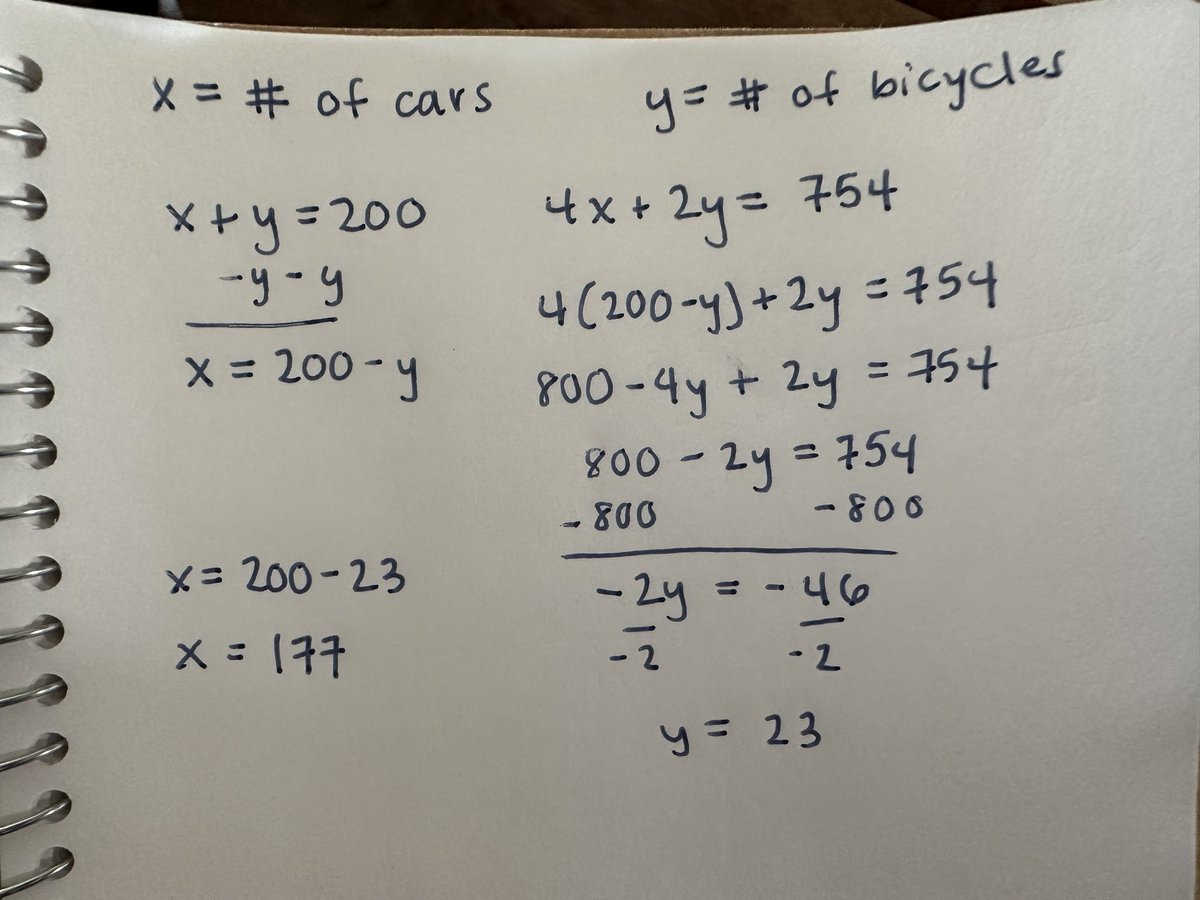 x = # of cars
y = # of bicycles
x + y = 200
-y - y
x = 200 - y
x = 200 - 23
x = 177
4x + 2y = 754
4(200-y) + 2y = 754
800 - 4y + 2y = 754
800 - 2y = 754
-800 -800
-2y = -46
-2 -2
y = 23